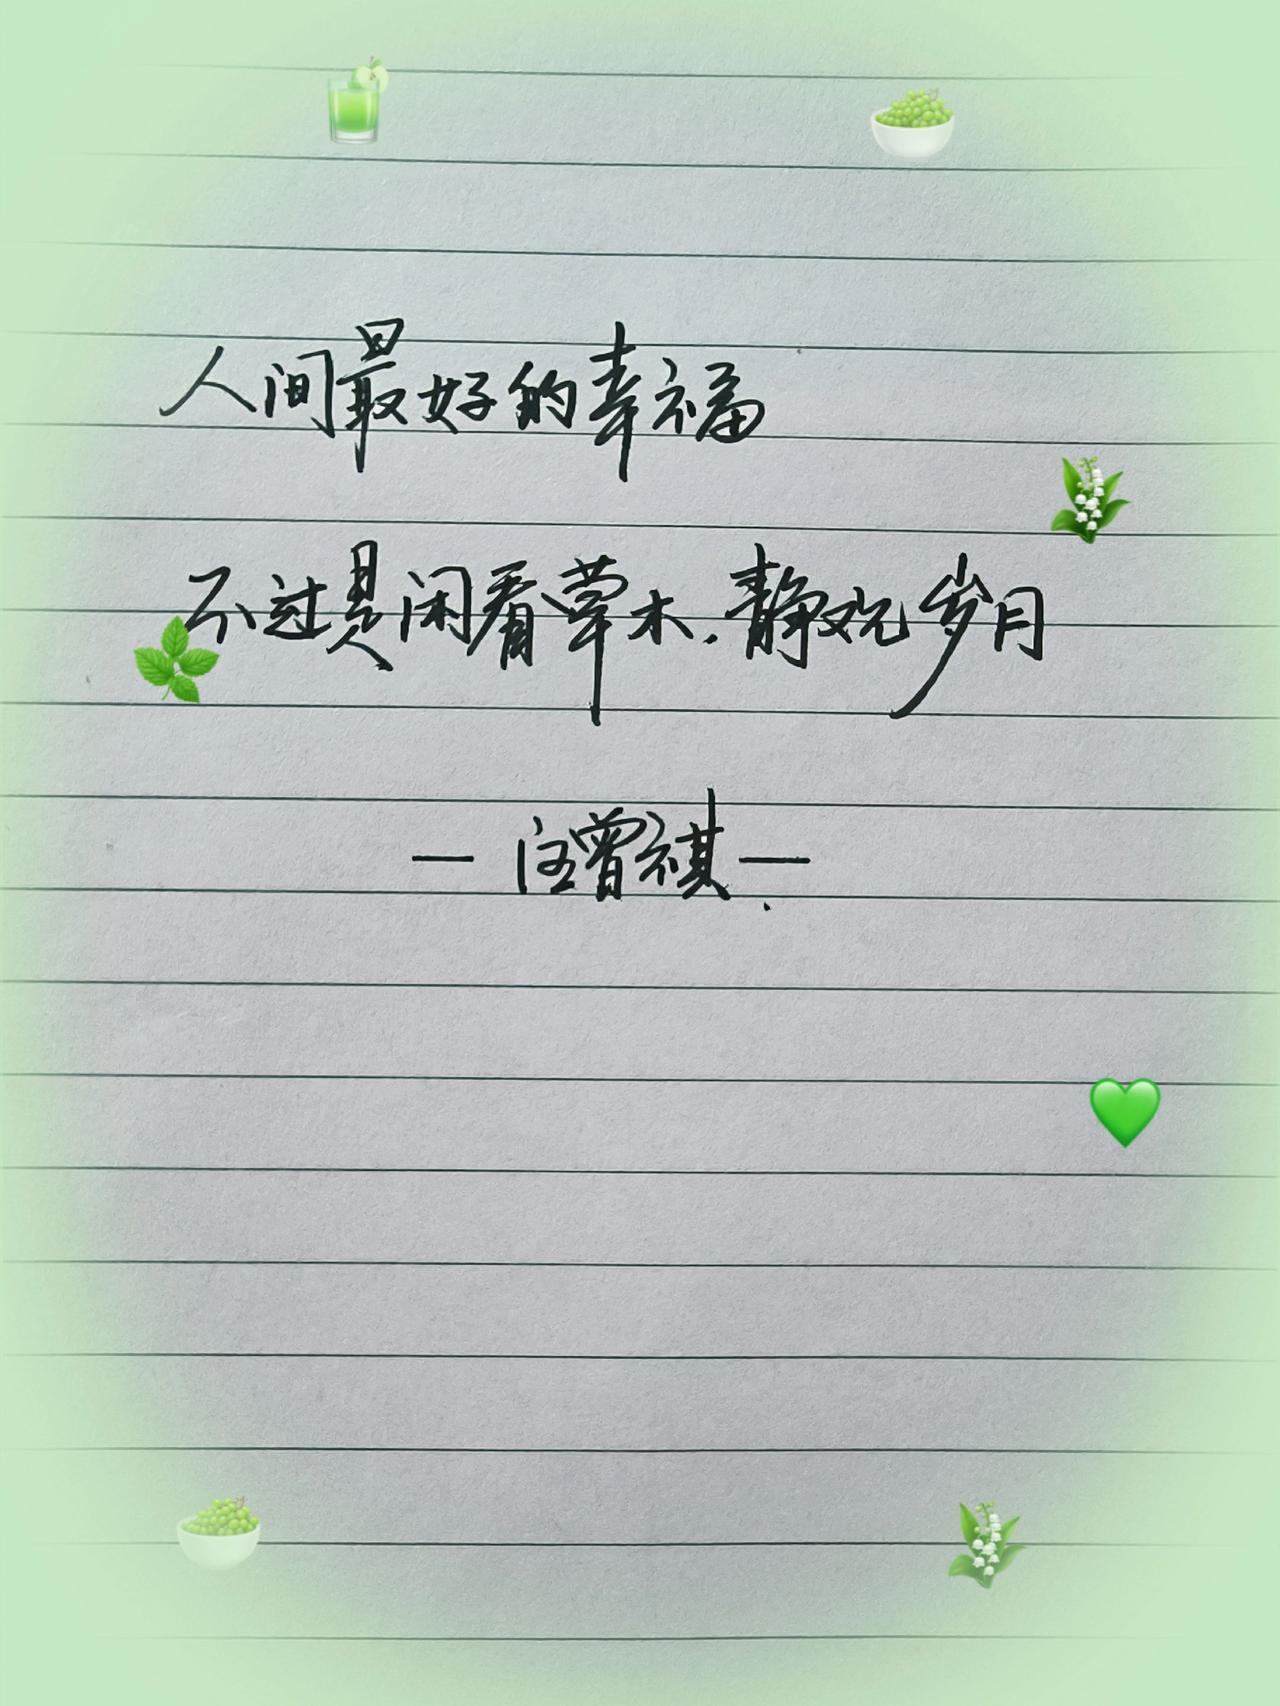 人间最好的幸福
不过是闲看草木.静观岁月
— 汪曾祺 —.